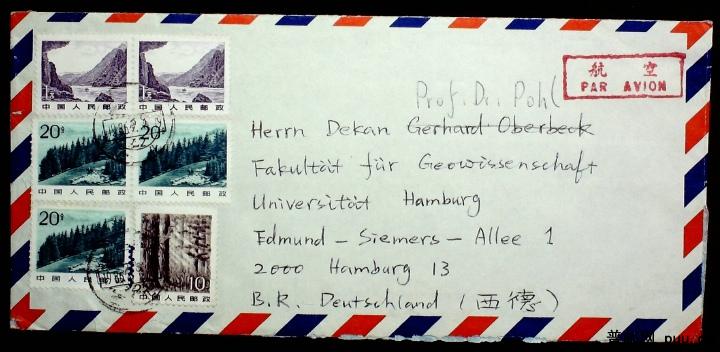 中国人民邮政
中国人民邮政
20分
20分
中国人民邮政
中国人民邮政
20分
10
中国人民邮政
中国人民邮政
航空
PAR AVION
Prof. Dr. Pohl
Herrn Dekan Gerhard Oberbeck
Fakultät für Geowissenschaft
Universität Hamburg
Edmund - Siemers - Allee 1
2000 Hamburg 13
B.R. Deutschland (西德)